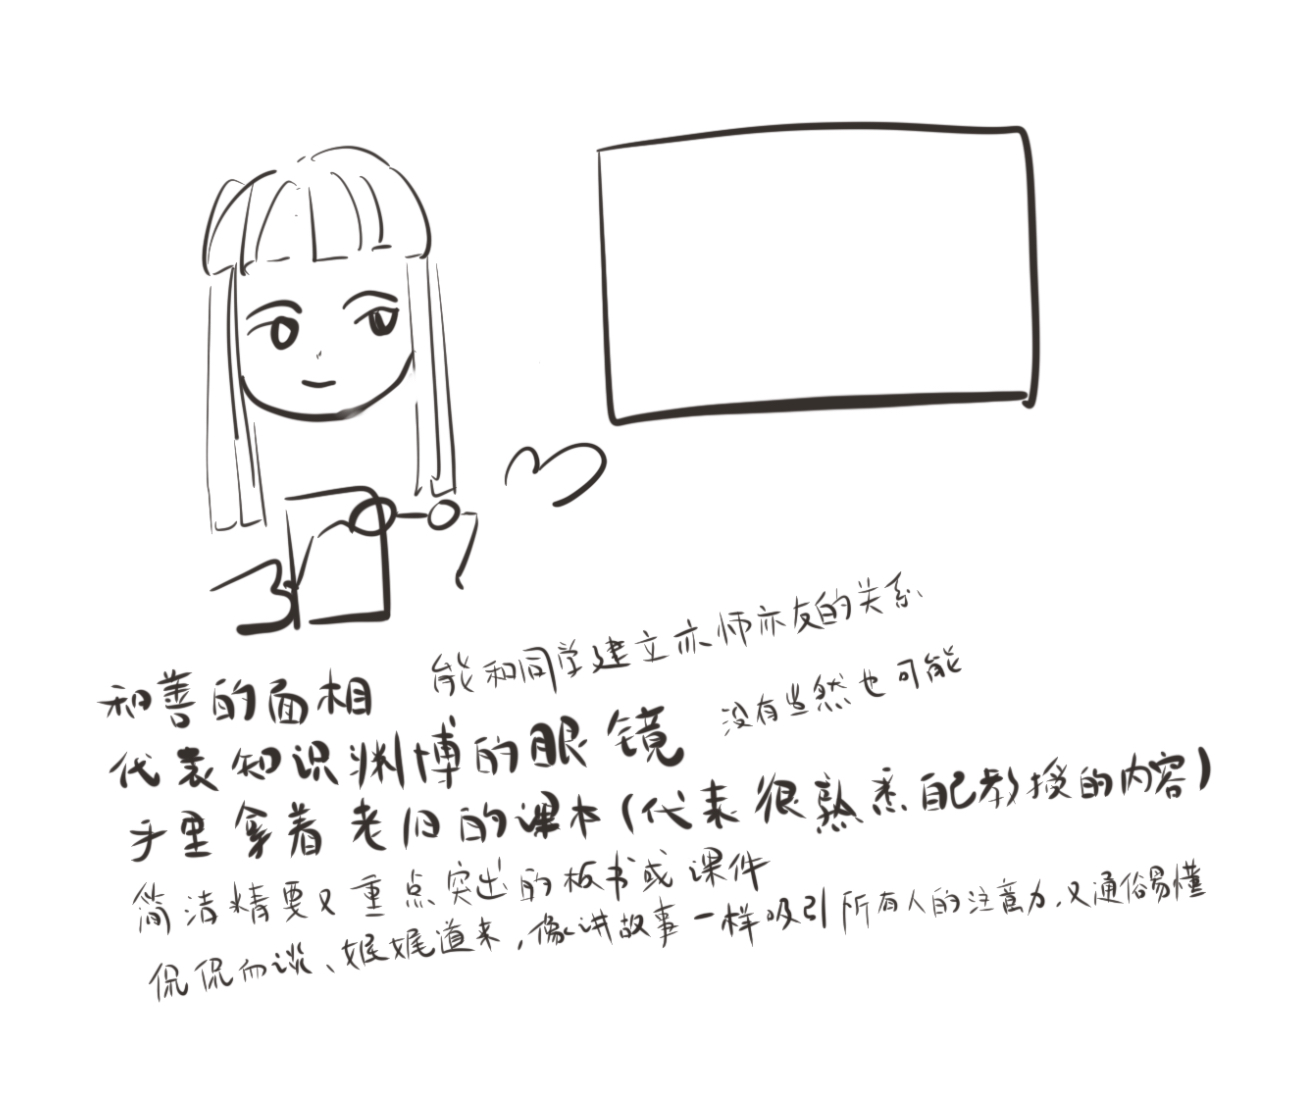 和善的面相 能和同学建立亦师亦友的关系
代表知识渊博的眼镜 没有当然也可能
手里拿着老旧的课本(代表很熟悉自己教授的内容)
简洁精要又重点突出的板书或课件
侃侃而谈、娓娓道来,像讲故事一样吸引所有人的注意力,又通俗易懂